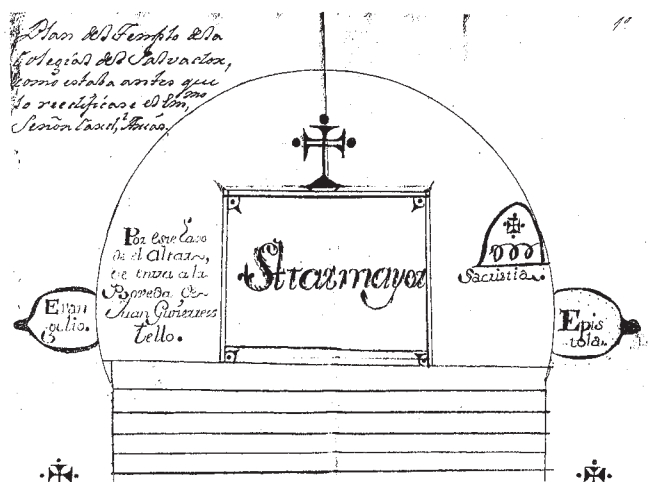 Plan del Templo de la
Colegial del Salvador,
como estaba antes que
lo reedificase el Em.mo
Señor Card.l Arias.
1º
Por este lado
de el Altar,
se entra a la
Boveda de
Juan Gutierres
tello.
Altar mayor
Sacristia.
Evan
gelio.
Epis
tola.